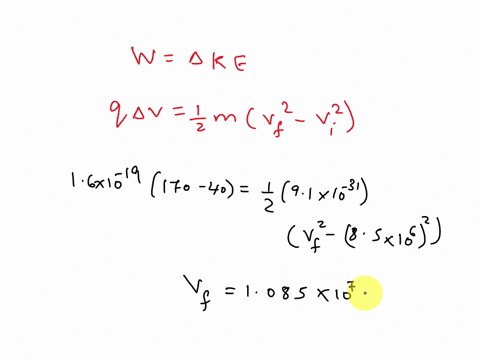 W = Δ K E
qΔv = 1/2 m (v_f² - v_i²)
1.6×10⁻¹⁹ (170 - 40) = 1/2 (9.1×10⁻³¹)
(v_f² - (8.5×10⁶)²)
V_f = 1.085×10⁷